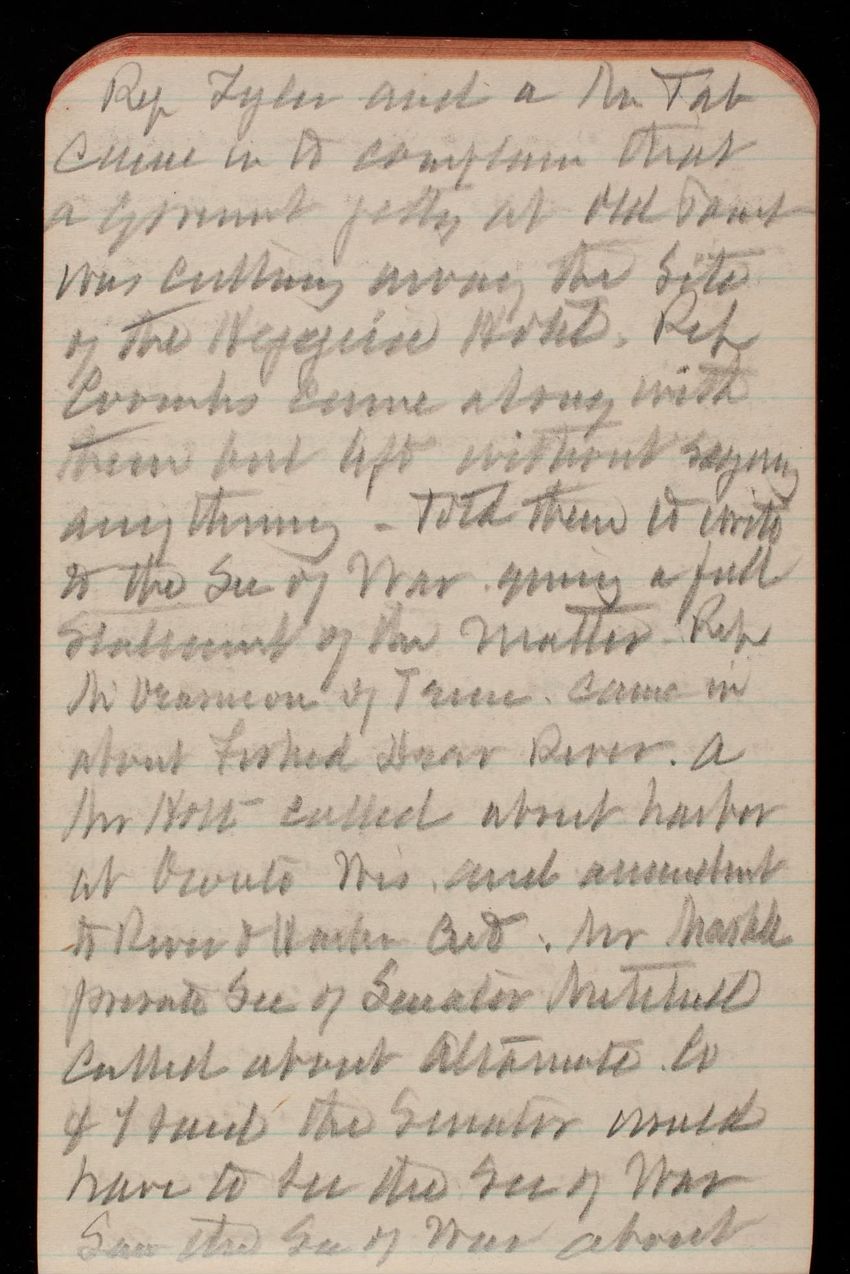 Rep Tyler and a Mr Tab
came in to complain that
a Government jetty at Old Point
was cutting away the Site
of the Hygeia Hotel. Rep
Coombs came along with
them but left without saying
anything - Told them to write
to the Sec of War giving a full
Statement of the matter. Rep
of Tenn. came in
about Forked Deer River. A
Mr Holt called about harbor
at Oconto Wis. and amendment
to River & Harbor Act. Mr
private Sec of Senator Mitchell
called about Co
& I said the Senator would
have to see the Sec of War
Saw the Sec of War about